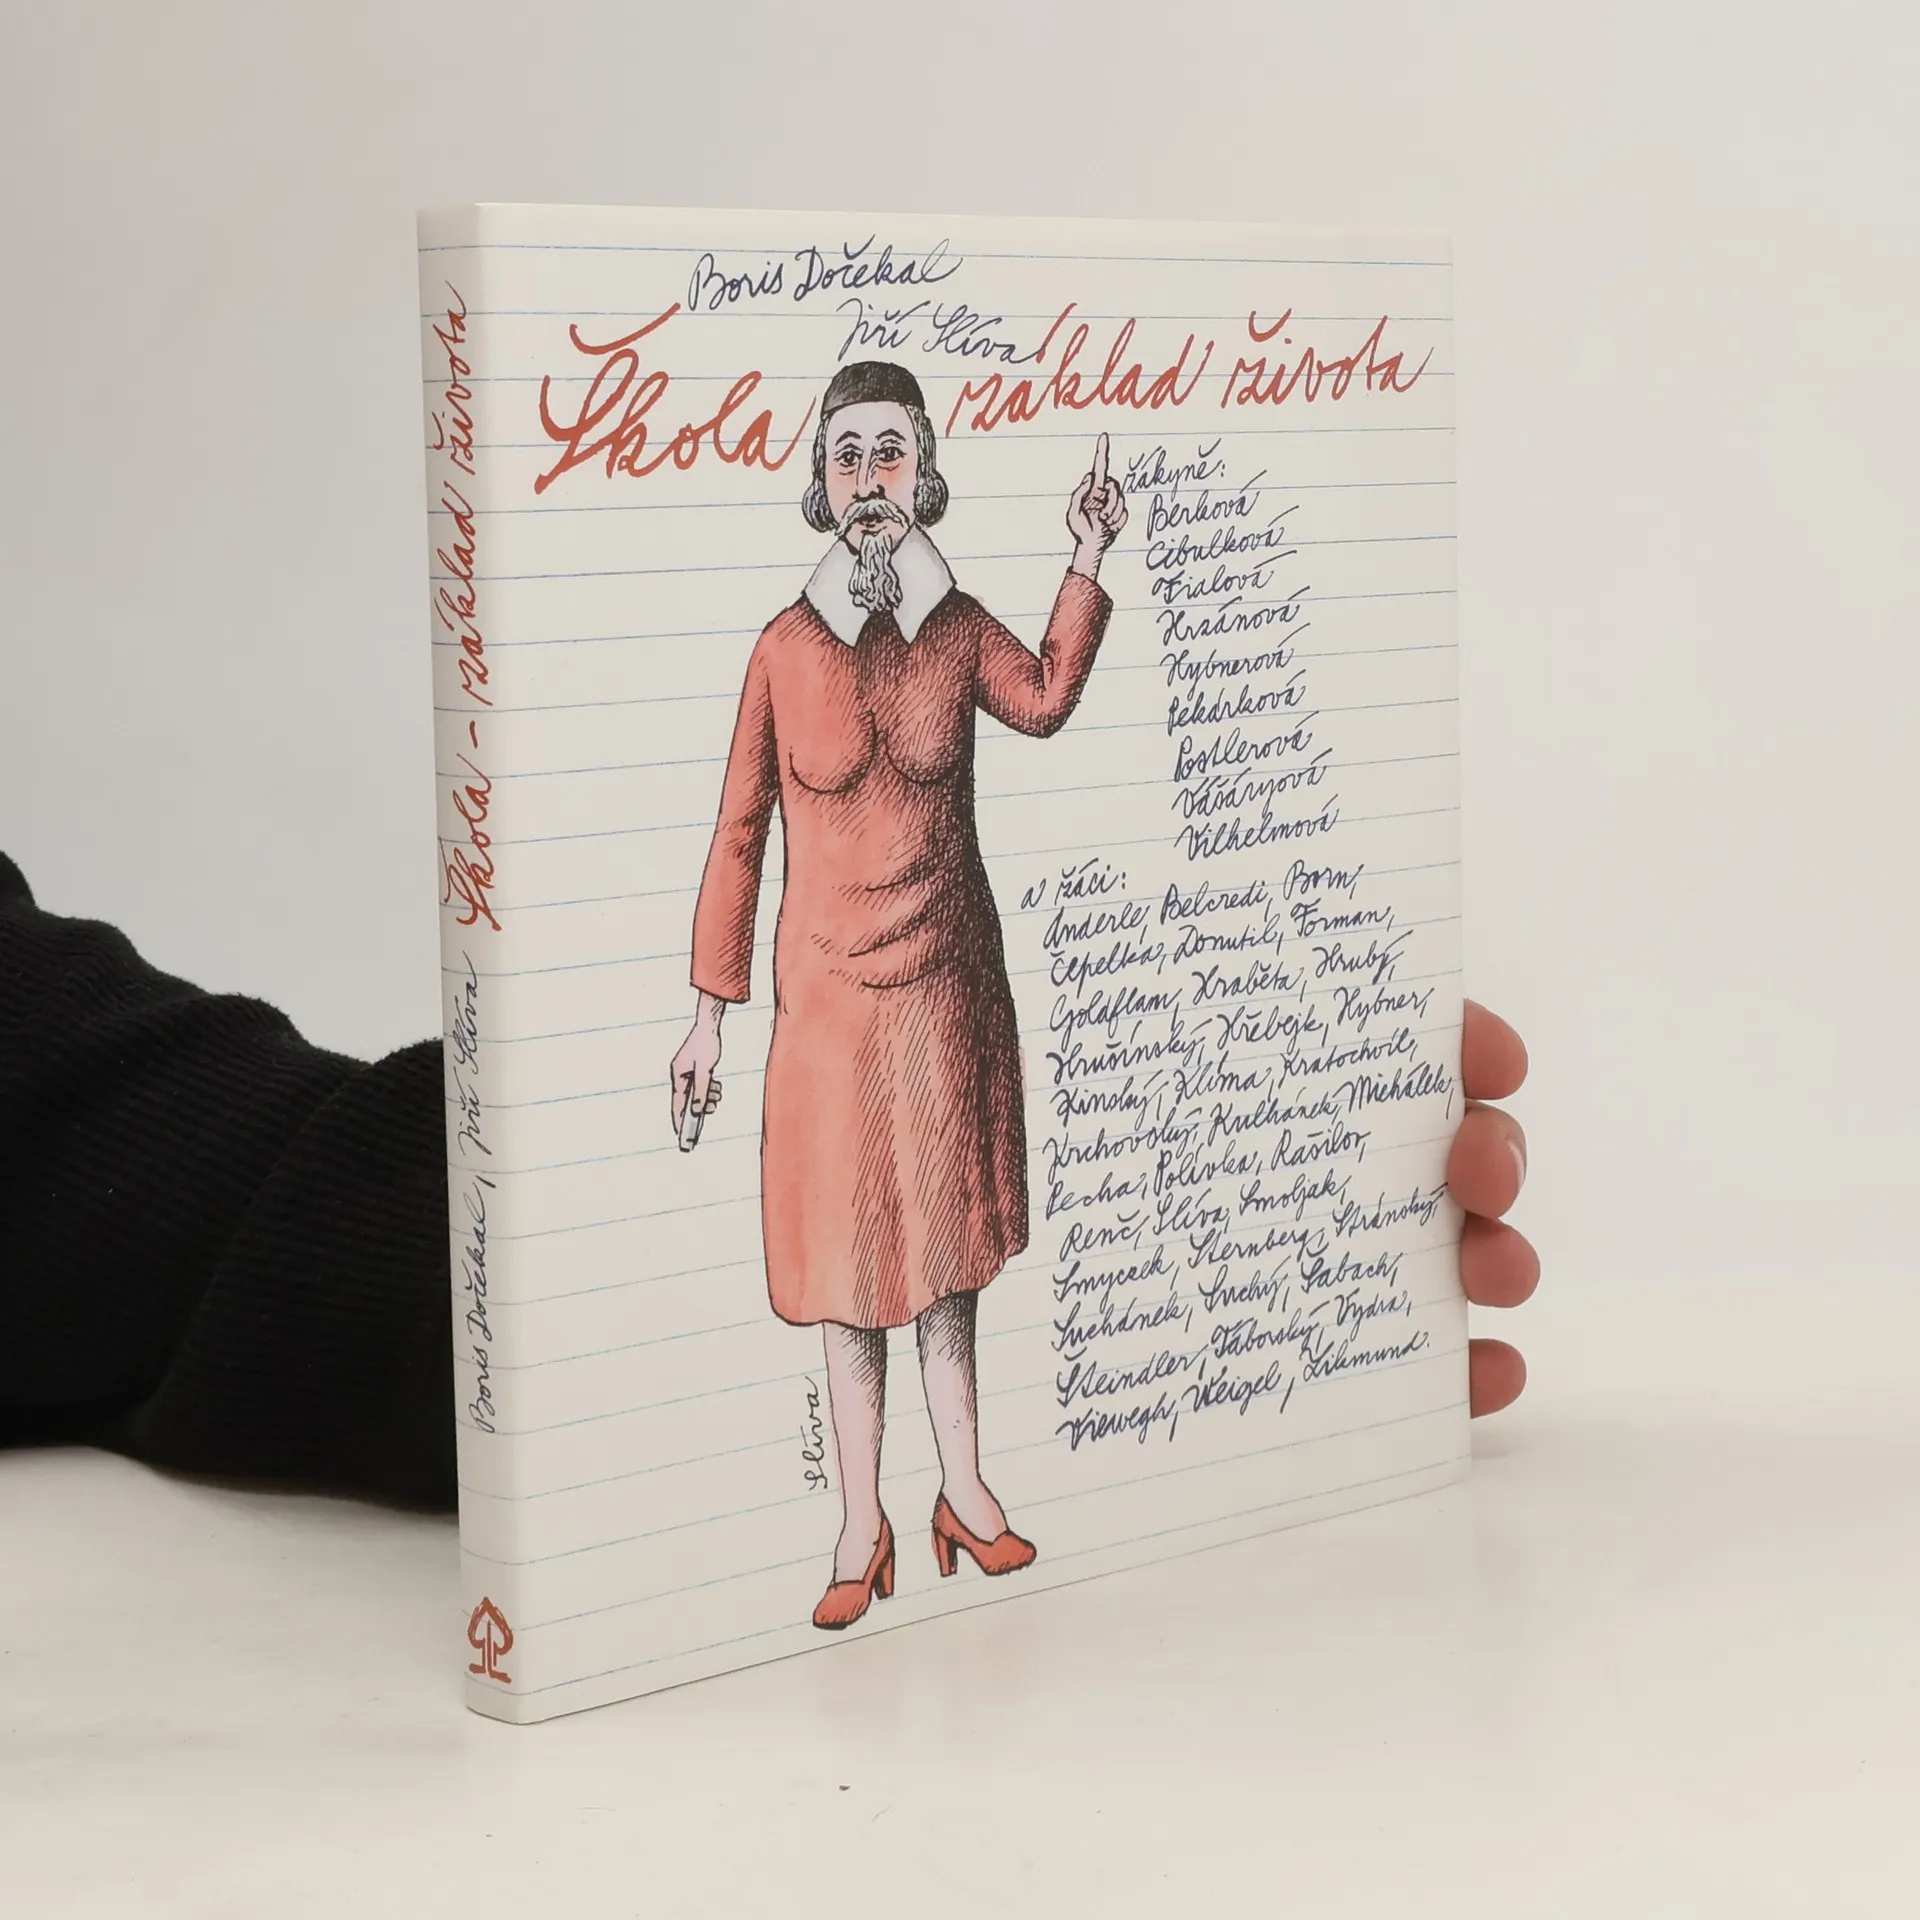 Škola – základ života
Boris Dočekal, Jiří Slíva
Boris Dočekal
Jiří Slíva
Škola základ života
žákyně:
Berková
Cibulková
Fialová
Hrzánová
Hybnerová
Pekárková
Postlerová
Vášáryová
Vilhelmová
a žáci:
Anderle, Belcredi, Born,
Čepelka, Donutil, Forman,
Goldflam, Hraběta, Hrubý,
Hrušínský, Hřebejk, Hybner,
Kinský, Klíma, Kratochvíl,
Krchovský, Kulhánek, Michálek,
Pecha, Polívka, Rašilov,
Renč, Slíva, Smoljak,
Smyczek, Sternberg, Stránský,
Suchánek, Suchý, Šabach,
Šteindler, Táborský, Vydra,
Viewegh, Weigel, Zikmund.
Slíva